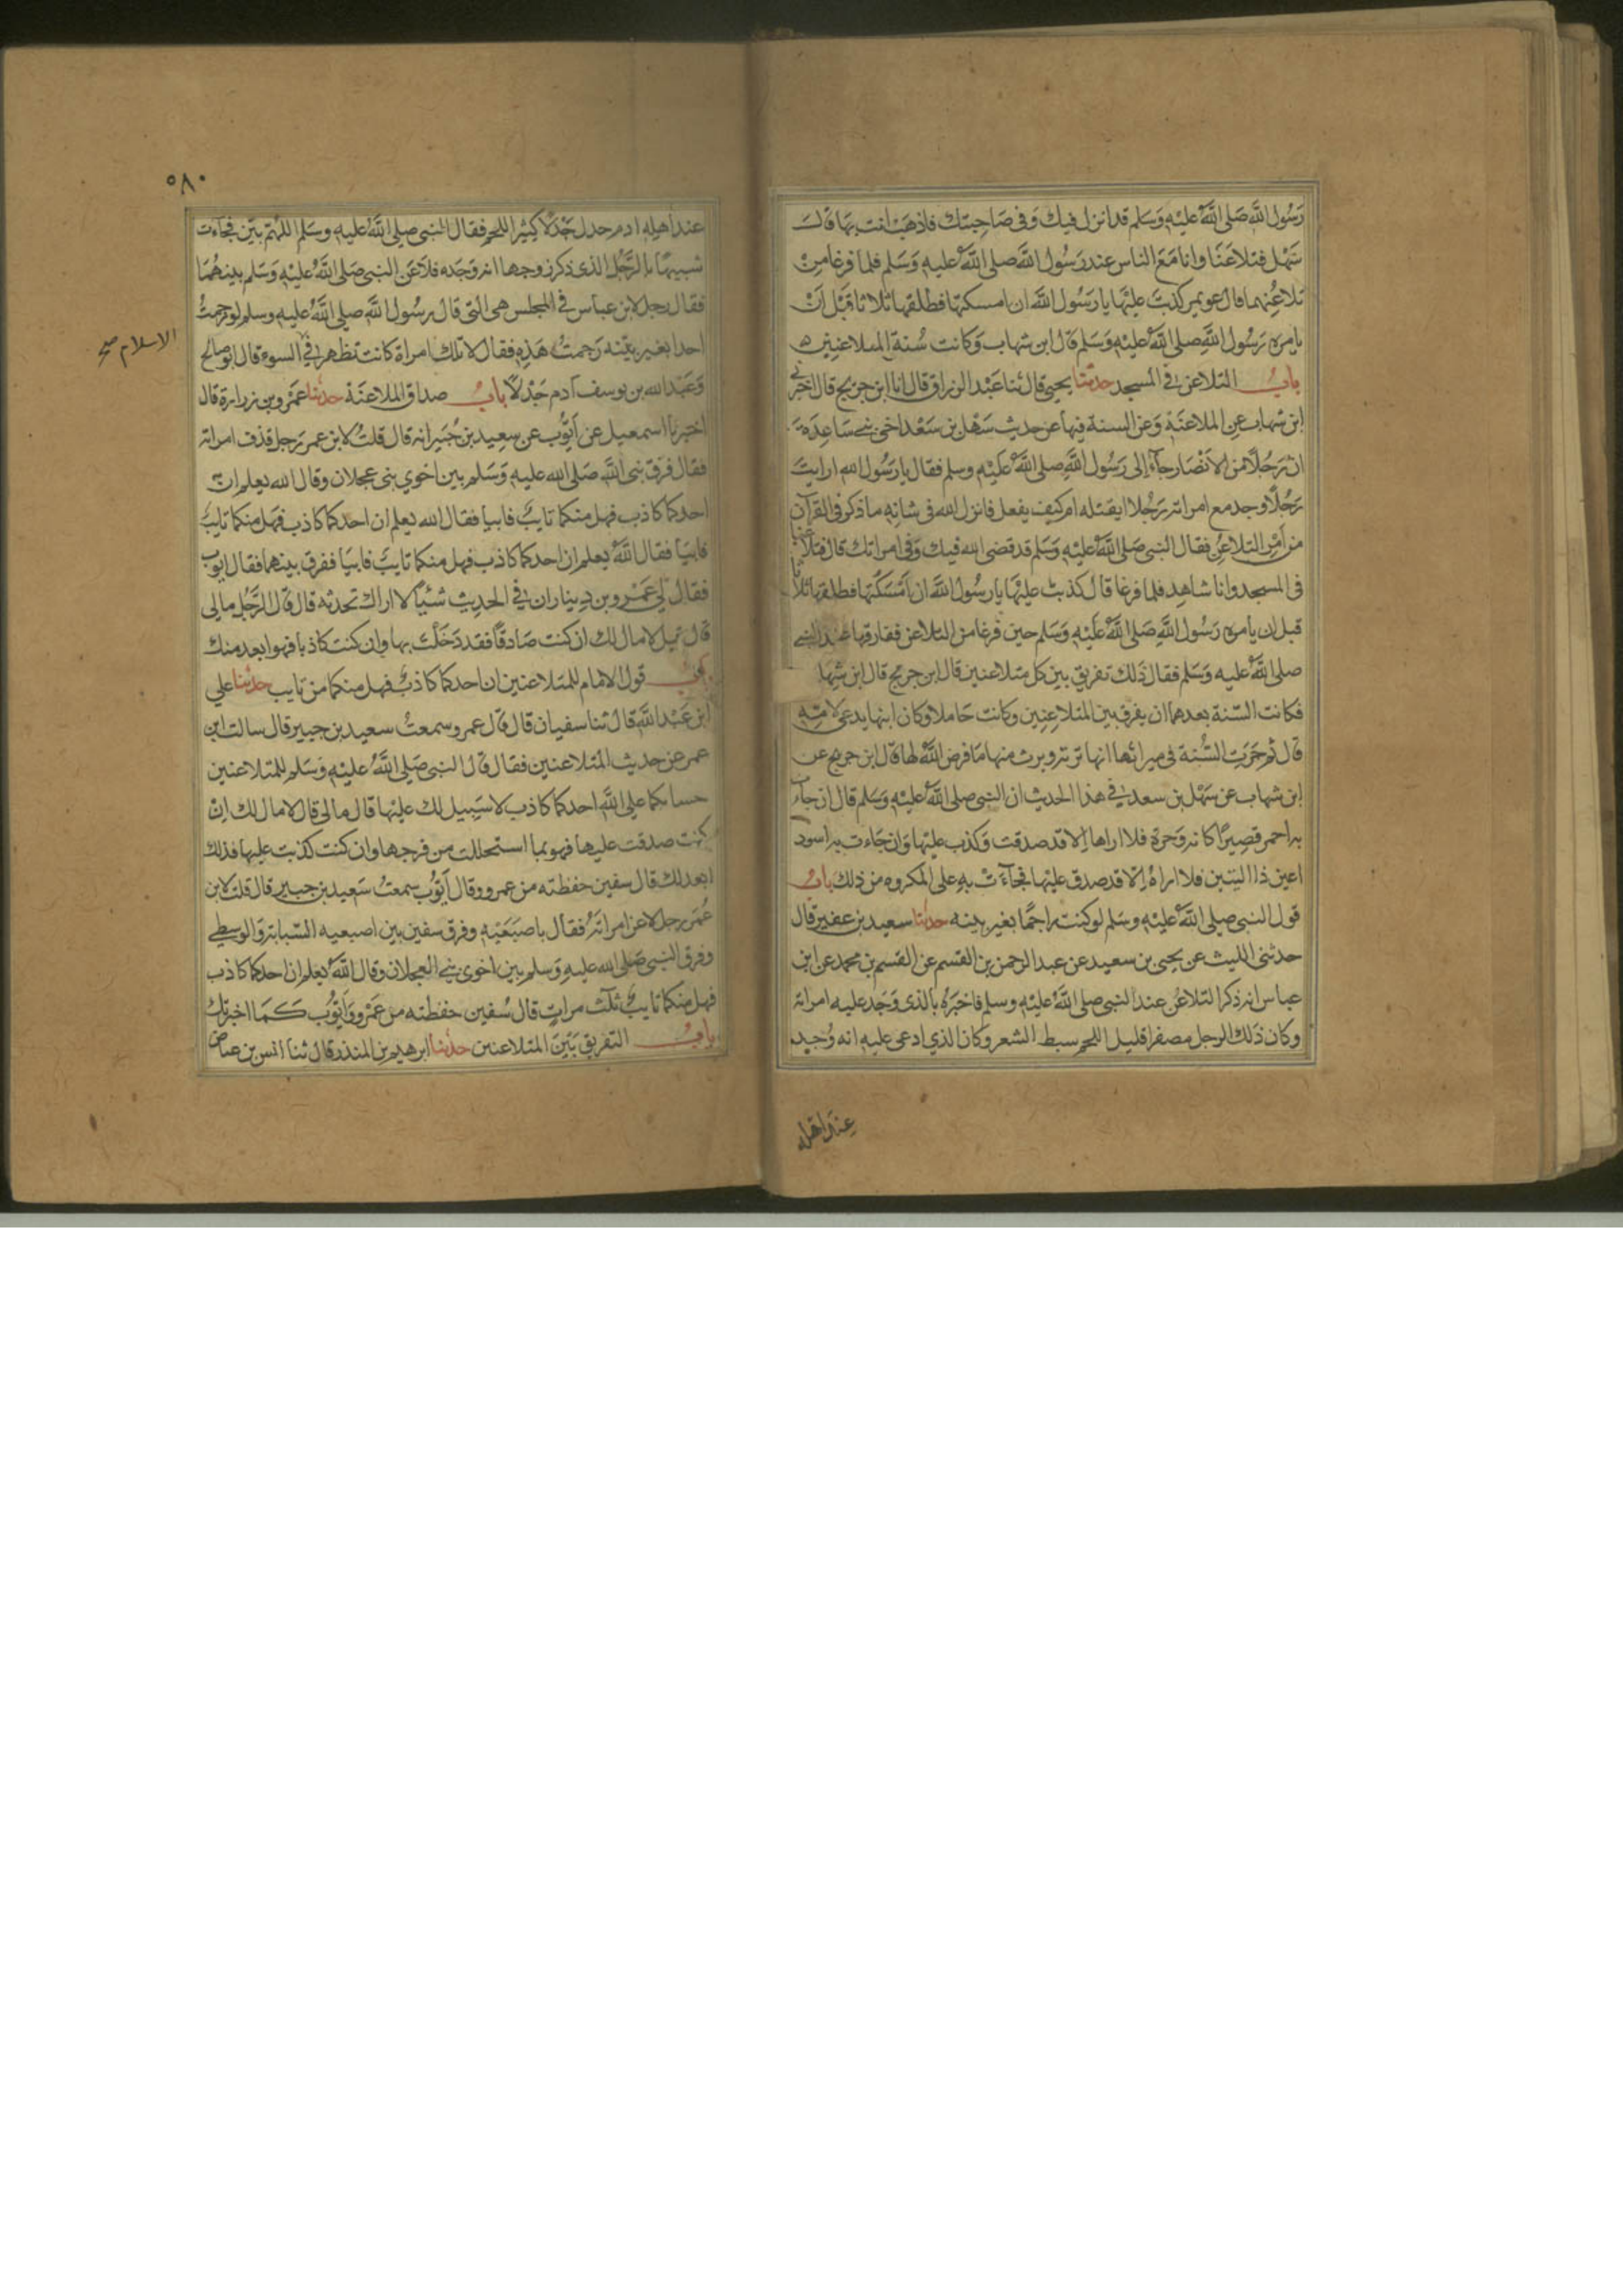 رَسُول اللَّه صَلى اللَّهُ عليْهِ وَسَلم قد انزل فيك وَفي صَاحِبتك فاذهَبْ انت بهَا قالَ
سَهْل فتلاعَنَا وانا مَعَ الناس عند رَسُول اللَّه صلى اللَّهُ عليهِ وَسَلم فلما فرغا مِنْ
تلاعُنِهما قال عويمر كذبتَ عليْهَا يا رَسُول اللَّه ان امسكتها فطلقها ثلاثا قَبْل اَنْ
يامره رَسُول اللَّهِ صلى اللَّهُ عليْهِ وَسَلم قال ابن شهاب وَكانت سُنة المتلاعنِين ه
بابُ التلاعن في المسجد حدثنا يحيى قال ثنا عَبْد الرزاق قال انا ابن جريج قال اخبرني
ابن شهاب عن الملاعنَة وَعن السنة فيها عن حديث سَهْل بن سَعْد اخي بني سَاعِدَة
ان رَجُلًا من الانْصَار جآءَ الى رَسُول اللَّهِ صلى اللَّهُ عليْهِ وسلم فقال يا رَسُول الله ارايتَ
رَجُلًا وجد مع امراته رَجُلا ايقتله ام كيف يفعل فانزل الله في شانِه ما ذكر في القرآن
من اَمْر التلاعُن فقال النبي صَلى اللَّهُ عليْهِ وَسَلم قد قضى الله فيك وَفي امراتك قال فتلاعنا
في المسجد وانا شاهد فلما فرغا قال كذبت عليْهَا يا رسُول اللَّه ان اَمْسَكْتُها فطلقها ثلاثا
قبل ان يامره رَسُول اللَّهِ صَلى اللَّهُ عَلَيْهِ وَسَلم حين فرغا من التلاعن ففارقها عند النبي
صلى اللَّهُ عليهِ وَسَلم فقال ذَلك تفريق بين كل متلاعنين قال ابن جريج قال ابن شهاب
فكانت السّنة بعدهما ان يفرق بين المتلاعِنِين وكانت حَاملا وكان ابنها يدعى لامّهِ
قال ثم جَرَتِ السُّنة في ميراثها انها ترثه ويرث منها مَا فرض اللَّهُ لها قال ابن جريج عن
ابن شهاب عن سَهْل بن سعد في هذا الحديث ان النبي صلى اللَّهُ عليْهِ وَسَلم قال ان جآءت
به احمر قصِيرًا كانه وَحَرَة فلا اراها الا قد صدقت وَكذب عليْها وَان جَاءت به اسود
اعين ذا اليتين فلا اراهُ الا قد صدق عليْها فجآءَتْ بهِ على المكروه من ذلك بابُ
قول النبي صلى اللَّهُ عليْهِ وسَلم لو كنت راجمًا بغير بينه حدثنا سعيد بن عفير قال
حدثني الليث عن يحيى بن سعيد عن عبد الرحمن بن القسم عن القسم بن محمد عن ابن
عباس انه ذكر التلاعُن عند النبي صلى اللَّهُ عليْهِ وسلم فاخبَرَهُ بالذي وَجَد عليه امراته
وكان ذَلك الرجل مصفرا قليل اللحم سبط الشعر وكان الذي ادعى عليه انه وُجد
عند اهله
٥٨٠
عند اهله ادم خدل جَدْلًا كثير اللحم فقال النبي صلى اللَّهُ عليهِ وسَلم اللهُمَّ بيّن فجآءت
شبيهًا بالرَّجُل الذي ذكر زوجها انه وَجَده فلاعَن النبي صَلى اللَّهُ عليْهِ وَسَلم بينهُمَا
فقال رجل لابن عباس في المجلس هي التي قال رسُول اللَّهِ صلى اللَّهُ عليهِ وسلم لو رجمتُ
احدا بغير بيّنه رَجمتُ هَذِهِ فقال لا تلك امراة كانت تظهر في السوء قال ابو صالح
الاسلام صح
وَعَبْد الله بن يوسف آدم جَدْلًا بابُ صداق الملاعنَة حدثنا عَمْرو بن زرارة قال
اخبرنا اسمعيل عن اَيُّوب عن سعِيد بن جُبَير انه قال قلتُ لابن عمر رَجل قذف امراته
فقال فرّق نبي اللَّهِ صَلى الله عليهِ وَسَلم بين اخوي بني عجلان وقال الله يعلم انّ
احدكما كاذب فهل منكما تايبٌ فابيا فقال الله يعلم ان احدكما كاذب فهَل منكما تايبٌ
فابيَا فقال اللَّهُ يعلم ان احدكما كاذب فهل منكما تايبٌ فابيَا ففرق بينهما فقال ايوب
فقال لي عَمْرو بن دِينار ان في الحديث شَيْئًا لا اراك تحدثه قال قال الرَّجُل مالي
قال قيل لا مال لك ان كنت صَادقًا فقد دَخَلْتَ بها وان كنت كاذبا فهو ابعد منك
بابُ قول الامام للمتلاعنين ان احدكما كاذبٌ فهل منكما من تايب حدثنا علي
ابن عَبْد اللَّهِ قال ثنا سفيان قال قال عمرو سمعتُ سعيد بن جبير قال سالت ابن
عمر عن حديث المتلاعنين فقال قال النبي صَلى اللَّهُ عليْهِ وَسَلم للمتلاعنين
حسابكما على اللَّهِ احدكما كاذب لا سَبِيل لك عليْها قال مالي قال لا مال لك انْ
كنت صدقت عليها فهو بما استحللت من فرجها وان كنت كذبت عليها فذلك
ابعد لك قال سفين حفظته من عمرو وقال اَيُّوب سمعتُ سَعِيد بن جبير قال قلت لابن
عُمَر رجل لاعن امراتهُ فقال باصبَعَيْهِ وفرق سفين بين اصبعيه السّبابة والوسطى
وفرق النبي صَلى الله عليهِ وَسلم بين اخوي بني العجلان وقال اللَّهُ يعلم ان احدكما كاذب
فهل منكما تايبٌ ثلَث مرات قال سُفين حفظته من عَمْرو وَاَيُّوب كَمَا اخبرتك
بابُ التفريق بَيْنَ المتلاعنين حدثنا ابرهيم بن المنذر قال ثنا انس بن عياض